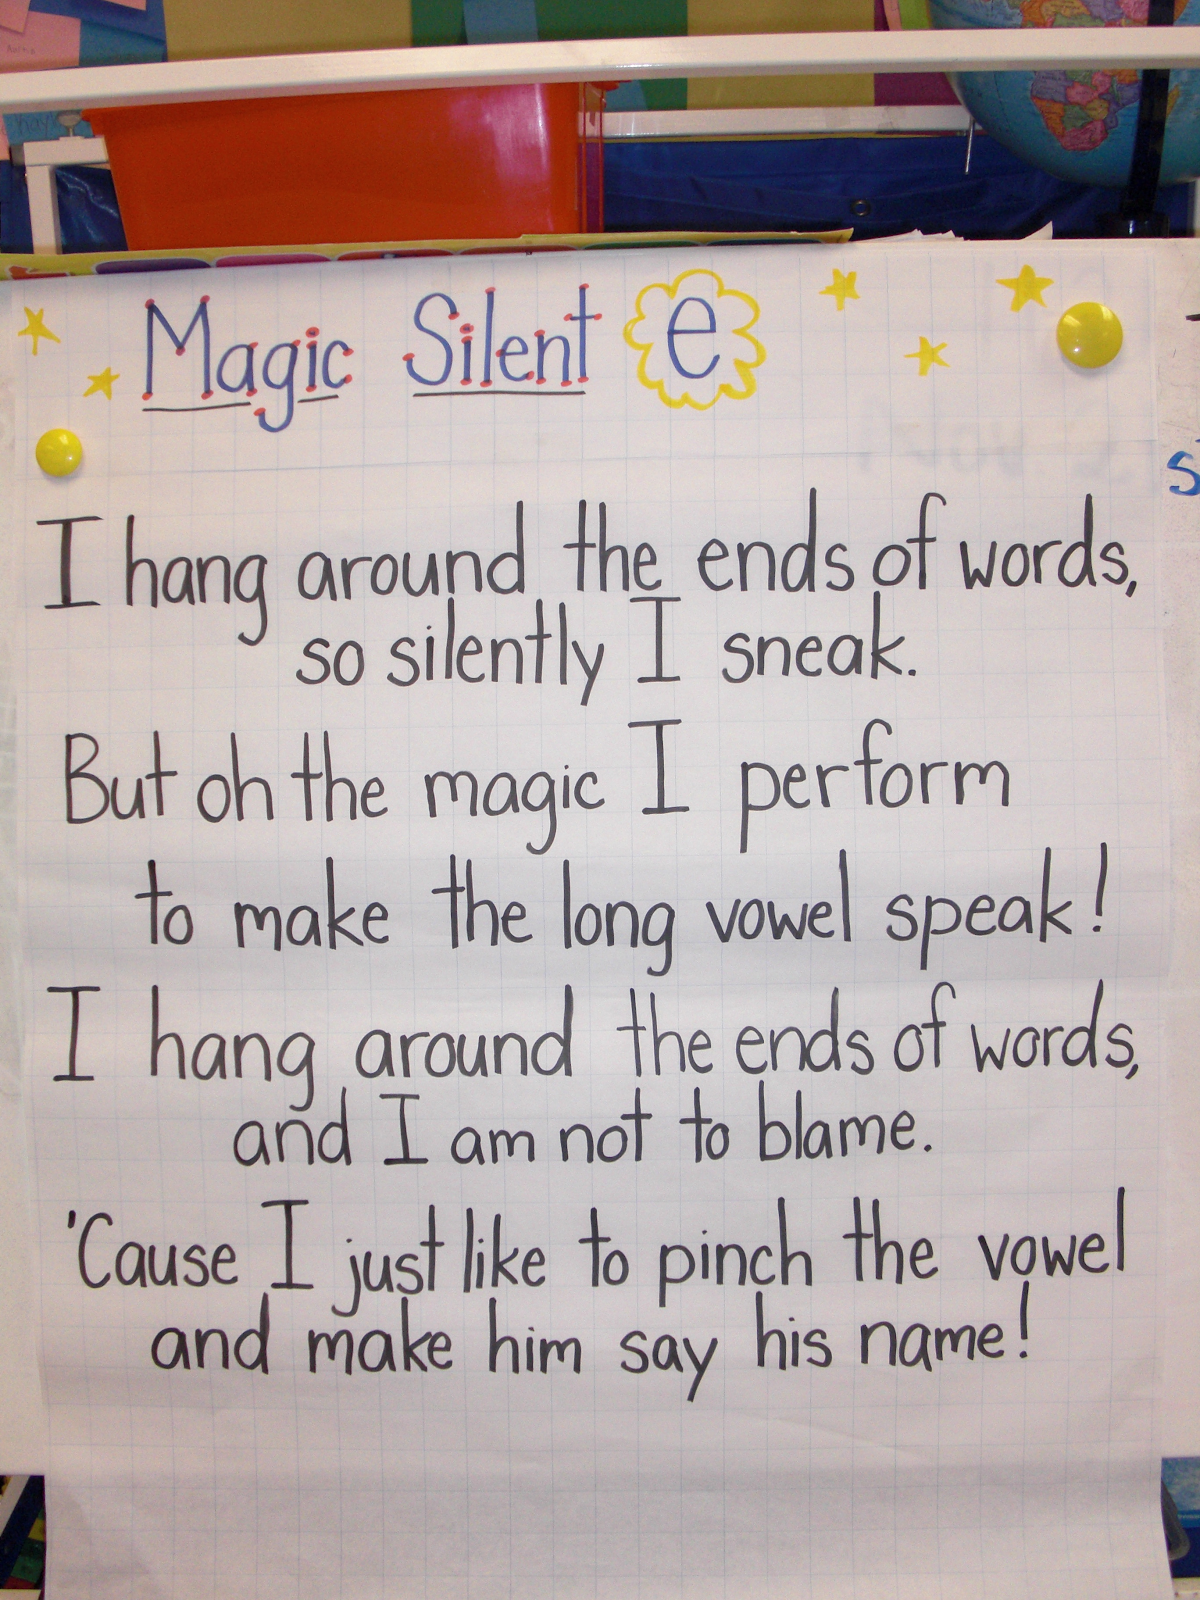 Magic Silent e
I hang around the ends of words,
so silently I sneak.
But oh the magic I perform
to make the long vowel speak!
I hang around the ends of words,
and I am not to blame.
'Cause I just like to pinch the vowel
and make him say his name!